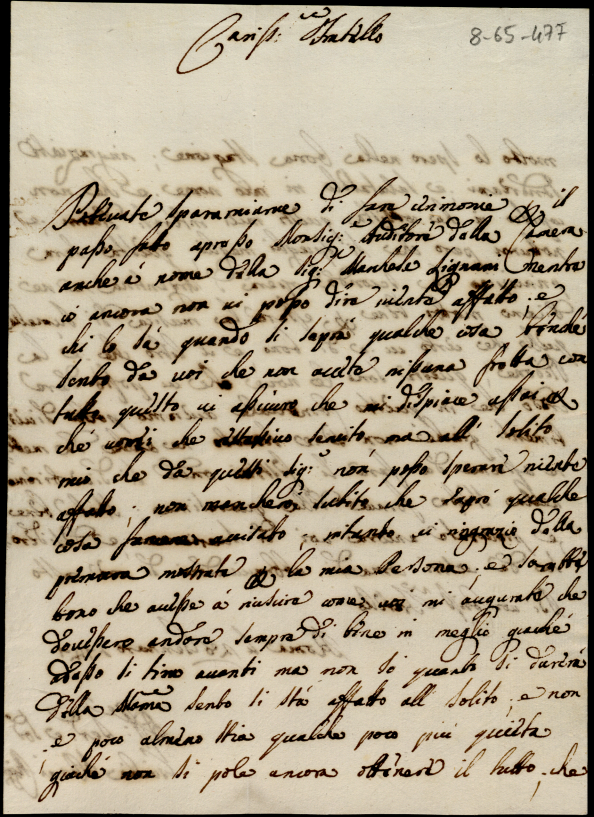 8-65-477
Cariss:mo Fratello
di fare in nome il
passo fatto apresso Monsig:re Auditore della Camera
anche á nome della Sig:ra Marchesa Lignani mentre
io ancora non vi posso dire niente affatto, e
chi lo sá quando si saprá qualche cosa benché
sento da voi che non avete nissuna fretta con
tutto questo vi assicuro che mi dispiace assai
che servito ma all' solito
mio che da questi Sig:ri non posso sperare niente
affatto; non mancheró subito che sapró qualche
cosa avisato, intanto vi ringrazio della
premura mostrata la mia Persona, e sarebbe
bono che avesse á riuscire come voi mi augurate che
dovessero andare sempre di bene in meglio giaché
adesso si tira avanti ma non so quanto si durerá
della Mama sento si stá affatto all' solito, e non
e poco almeno stia qualche poco piú quieta
giaché non si pole ancora ottenere il tutto, che